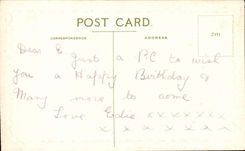 POST CARD.
CORRESPONDENCE ADDRESS
Dear E just a PC to wish
you a Happy Birthday &
Many more to come
Love Edie xxxxxxx
x x x x x x x